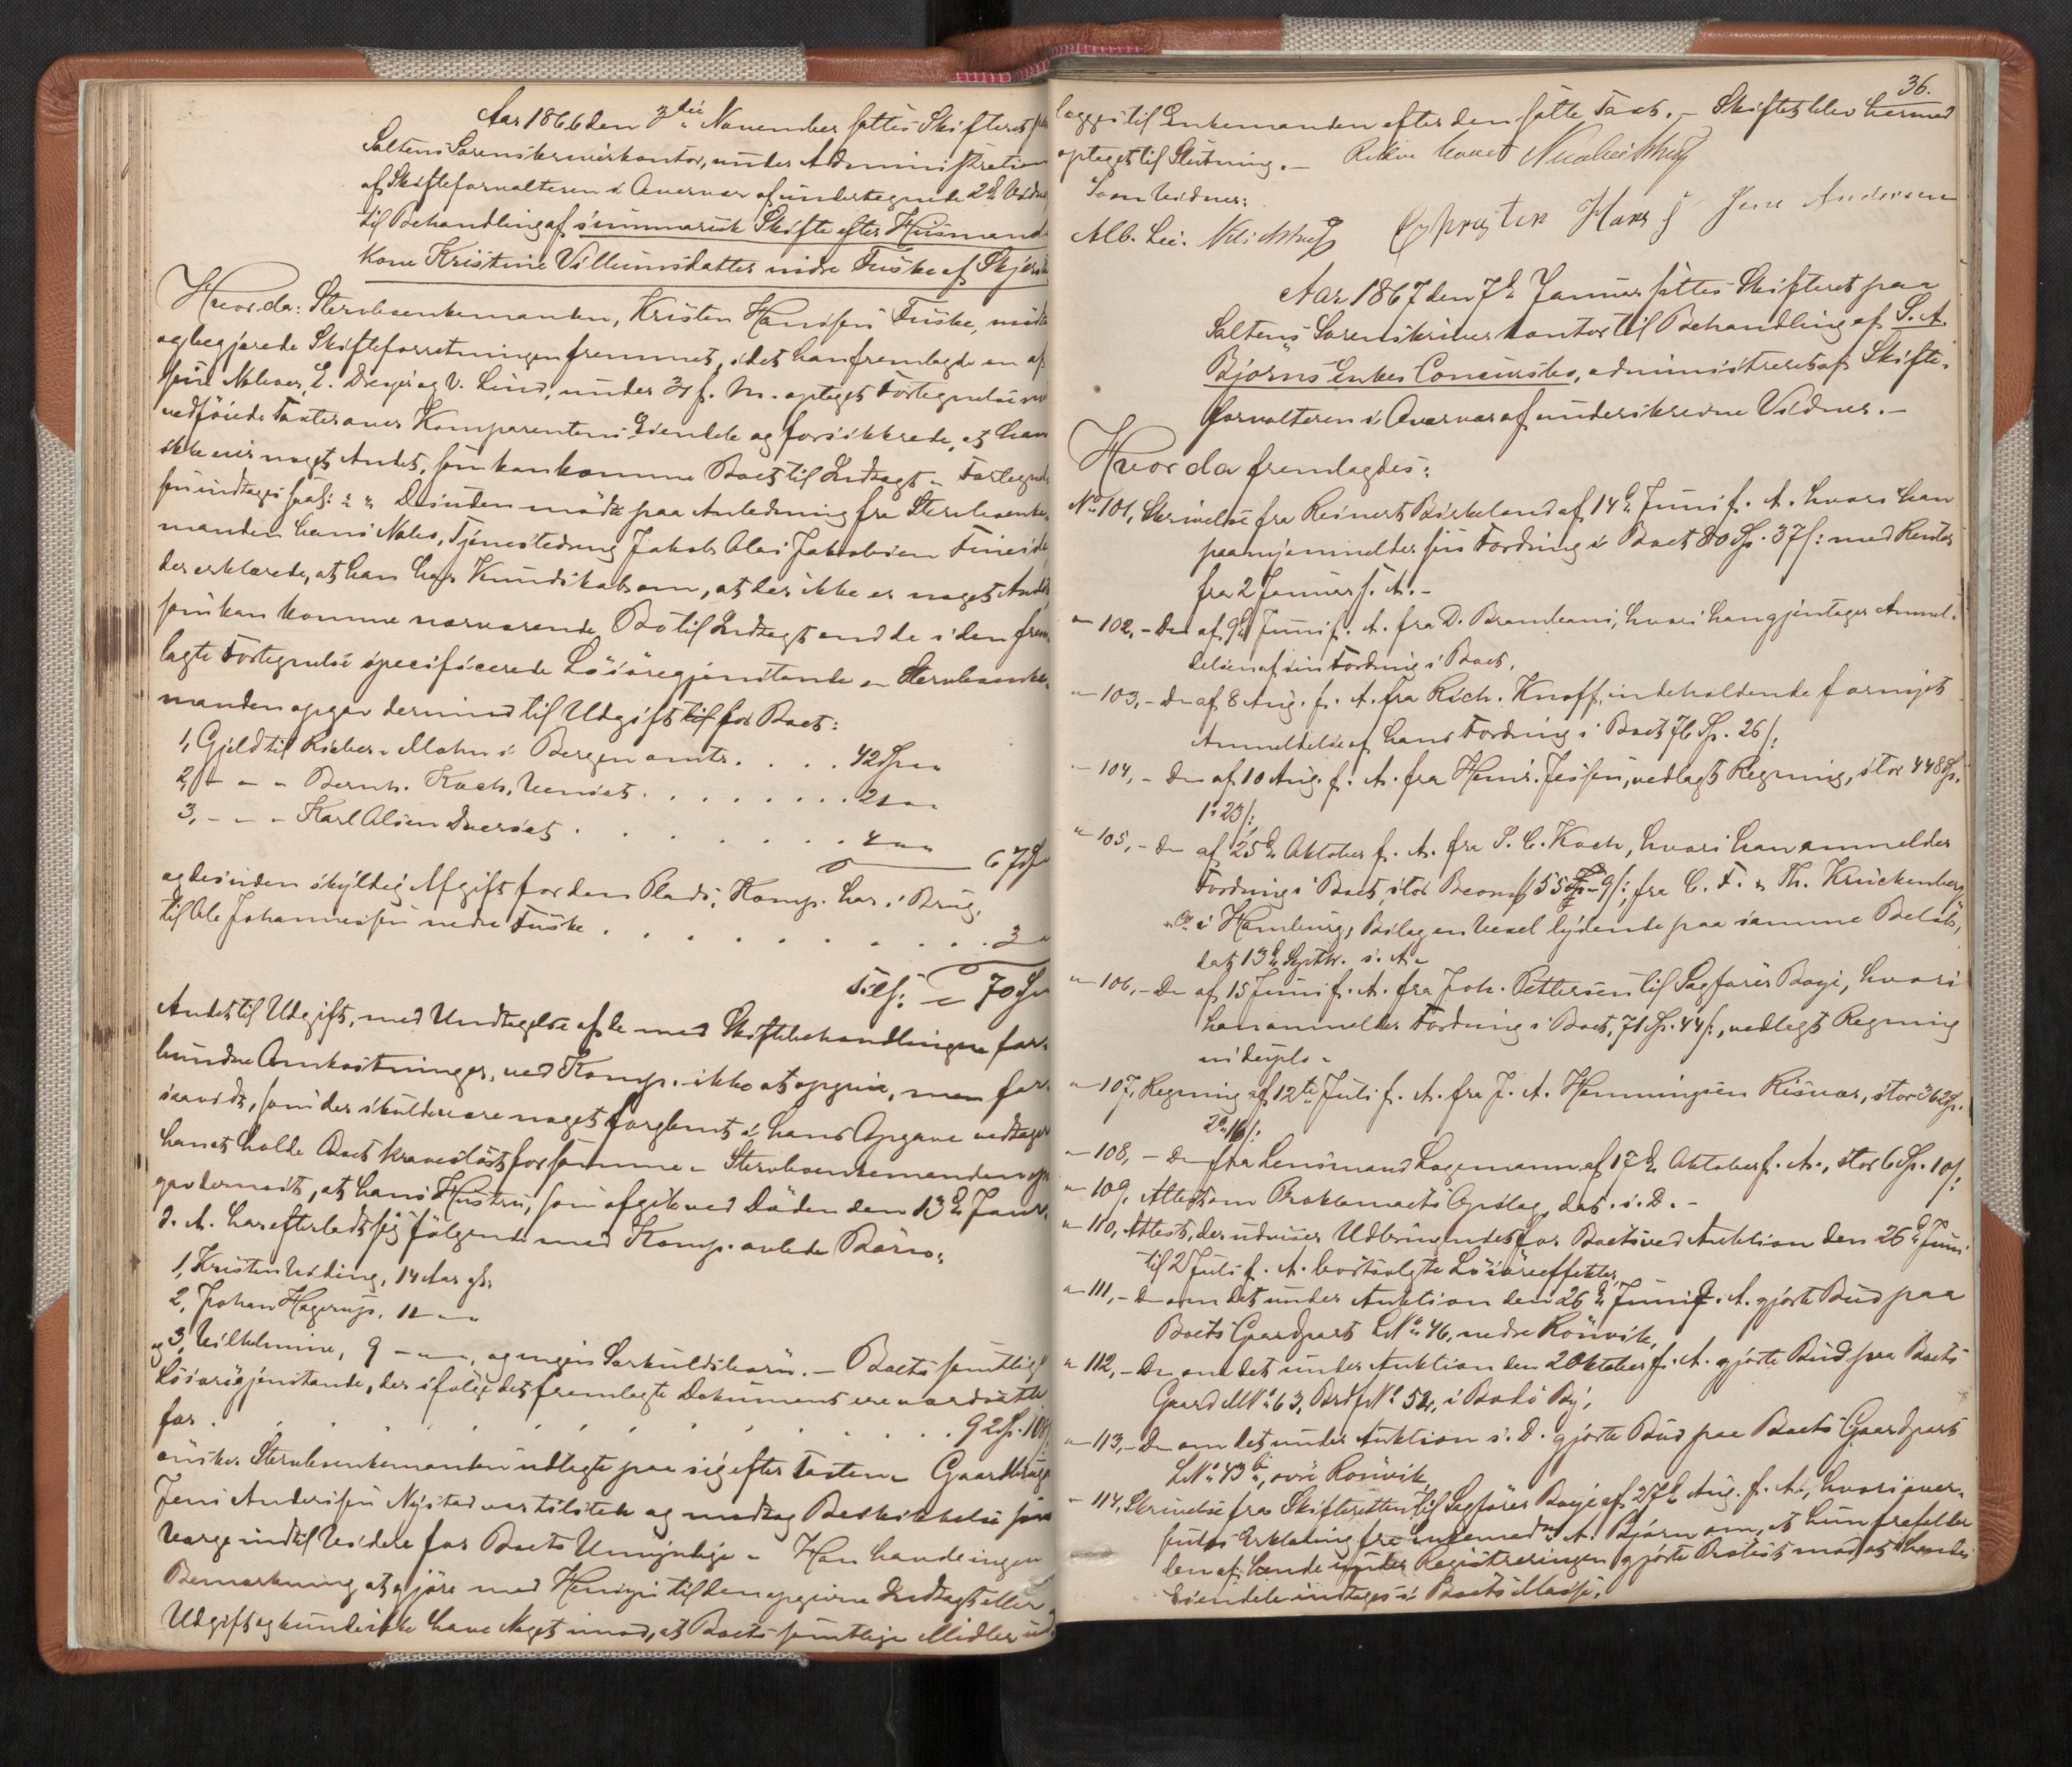 Aar 1866 den 3die November sattes Skifteret paa
Saltens Sorenskriverkontor, under Administration
af Skifteforvalteren i Overvær af undertegnede 2de Vidner
til Behandling af summarisk Skifte efter Husmands
Kone Kristine Villumsdatter nedre Fuske af Skjerstad
Hvorda: Stervboenkemanden, Kristen Hansen Fuske, mødte
og begjærede Skifteforretningen fremmet, idet han fremlagde en af
sine Naboer, E. Dreyer og V. Lund, under 31 f. M. optaget Fortegnelse
vedføiede Taxter over Komparentens Eiendele og forsikkrede, at han
ikke eier noget Andet, som kan komme Boet til Indtægt. Fortegnel
sen indtages saal: " " Desuden mødte paa Anledning fra Stervboenke
manden hans Nabo, Tjenestedreng Jakob Olai Jakobsen Fineide
der erklærede, at han har Kundskab om, at der ikke er noget Andet
som kan komme nærværende Bo til Indtægt end de i den frem
lagte Fortegnelse specificerede Løsøregjenstande. Stervboenke
manden opgav dernæst til Udgift til for Boet:
1, Gjeld til Rieber & Mohn i Bergen omtr. . . . 42 Sp " "
2, - " - " Bernh. Koch, Venset . . . . . . . 21 " "
3, - " - " Karl Olsen Dverset . . . . . . . 4 " "
67 Sp "
og desuden skyldig Afgift for den Plads, Komp. har i Brug,
til Ole Johannessen nedre Fuske . . . . . . . . . 3 "
Tils: " 70 Sp "
Andet til Udgift, med Undtagelse af de med Skiftebehandlingen for-
bundne Omkostninger, ved Komp. ikke at opgive, men for-
saavidt, som der skulde være noget forglemt i hans Opgave vedtager
han at holde Boet kravesløst for samme. Stervboenkemanden op
gav dernæst, at hans Hustru, som afgik ved Døden den 13de Janr.
d. A. har efterladt sig følgende med Komp. avlede Børn:
1, Kristen Uding, 14 Aar gl.
2, Johan Hagerup, 11 - " -
og 3, Vilhelmine, 9 - " -, og ingen Særkuldsbørn. - Boets samtlige
Løsøregjenstande, der ifølge det fremlagte Dokument ere værdsatte
for . . . . . . . . . . . . . . . 92 Sp. 108 ß
ønsker Stervboenkemanden udlagte paa sig efter Taxten. Gaardbruger
Jens Anderssen Nystad var tilstede og modtog Beskikkelse som
Værge indtil Videre for Boets Umyndige. Han havde ingen
Bemærkning at gjøre med Hensyn til den opgivne Indtægt eller
Udgift og kunde ikke have Noget imod, at Boets samtlige Midler ud
36.
lægges til Enkemanden efter den satte Taxt. - Skiftet blev hermed
optaget til Slutning. -
Som Vidner:
Alb. Lie. Christen Hans Jens Andersen
Aar 1867 den 7de Januar sattes Skifteret paa
Saltens Sorenskriverkontor til Behandling af S. A.
Bjørns Enkes Concursbo, administreret af Skifte-
forvalteren i Overvær af underskrevne Vidner. -
Hvorda fremlagdes:
No 101, Skrivelse fra Reinert Birkeland af 14de Juni f. A. hvori han
paany anmelder sin Fordring i Boet 80 Sp. 37 ß: med Renter
fra 2 Januar s. A. -
" 102, - Do af 9de Juni f. A. fra D. Brambani, hvori han gjentager Anmel-
delsen af sin Fordring i Boet.
" 103, - Do af 8 Aug. f. A. fra Rich. Knoff, indeholdende fornyet
Anmeldelse af hans Fordring i Boet 76 Sp. 26 ß:
" 104, - Do af 10 Aug. f. A. fra Henr. Jessen, vedlagt Regning, stor 448 Sp.
1 " 23 ß:
" 105, - Do af 25de Oktober f. A. fra S. C. Koch, hvori han anmelder
Fordring i Boet, stor Bcomk 553 " 9 ß:, fra C. F. & Th. Krückenberg
& Co i Hamburg, Bilag en Vexel lydende paa samme Beløb,
dat 13de Septbr. s. A. -
" 106, - Do af 15 Juni f. A. fra Joh. Pettersen til Sagfører Boye, hvori
han anmelder Fordring i Boet, 71 Sp. 44 ß:, vedlagt Regning
in duplo -
" 107, Regning af 12te Juli f. A. fra J. A. Henningsen Risvær, stor 362 Sp.
2 " 16 ß:
" 108, - Do fra Lensmand Lagemann af 17de Oktober f. A., stor 6 Sp. 10 ß:
" 109, Attest om Proklamaets Opslag, dat. s. D. -
" 110, Attest, der udviser Udbringendet for Boets ved Auktion den 26de Juni
til 2 Juli f. A. bortsolgte Løsøreeffekter,
" 111, - Do om det under Auktion den 26de Juni f. A. gjorte Bud paa
Boets Gaardpart LNo 46, nedre Rønvik,
" 112, - Do om det under Auktion den 2 Oktober f. A. gjorte Bud paa Boets
Gaard MNo 63, Brdf No 52, i Bodø By,
" 113, - Do om det under Auktion s. D. gjorte Bud paa Boets Gaardpart
LNo 43b, øvre Rønvik
" 114, Skrivelse fra Skifteretten til Sagfører Boye af 27de Aug. f. A., hvori over-
sendes Erklæring fra Enkemad. A. Bjørn om, at hun frafalder
den af hende under Registreringen gjorte Protest mod at hendes
Eiendele indtages i Boets Masse.